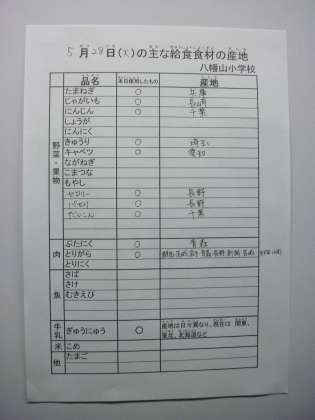 5月28日(火)の主な給食食材の産地
八幡山小学校
品名 本日使用したもの 産地
野菜・果物
たまねぎ ○ 兵庫
じゃがいも ○ 長崎
にんじん ○ 千葉
しょうが
にんにく
きゅうり ○ 埼玉
キャベツ ○ 愛知
ながねぎ
こまつな
もやし
セロリー ○ 長野
パセリ ○ 長野
だいこん ○ 千葉
肉
ぶたにく ○ 青森
とりがら ○
とりにく
魚
さば
さけ
むきえび
牛乳 ぎゅうにゅう ○ 産地は日々異なり、現在は 関東、
東北、北海道など
米 こめ
他 たまご